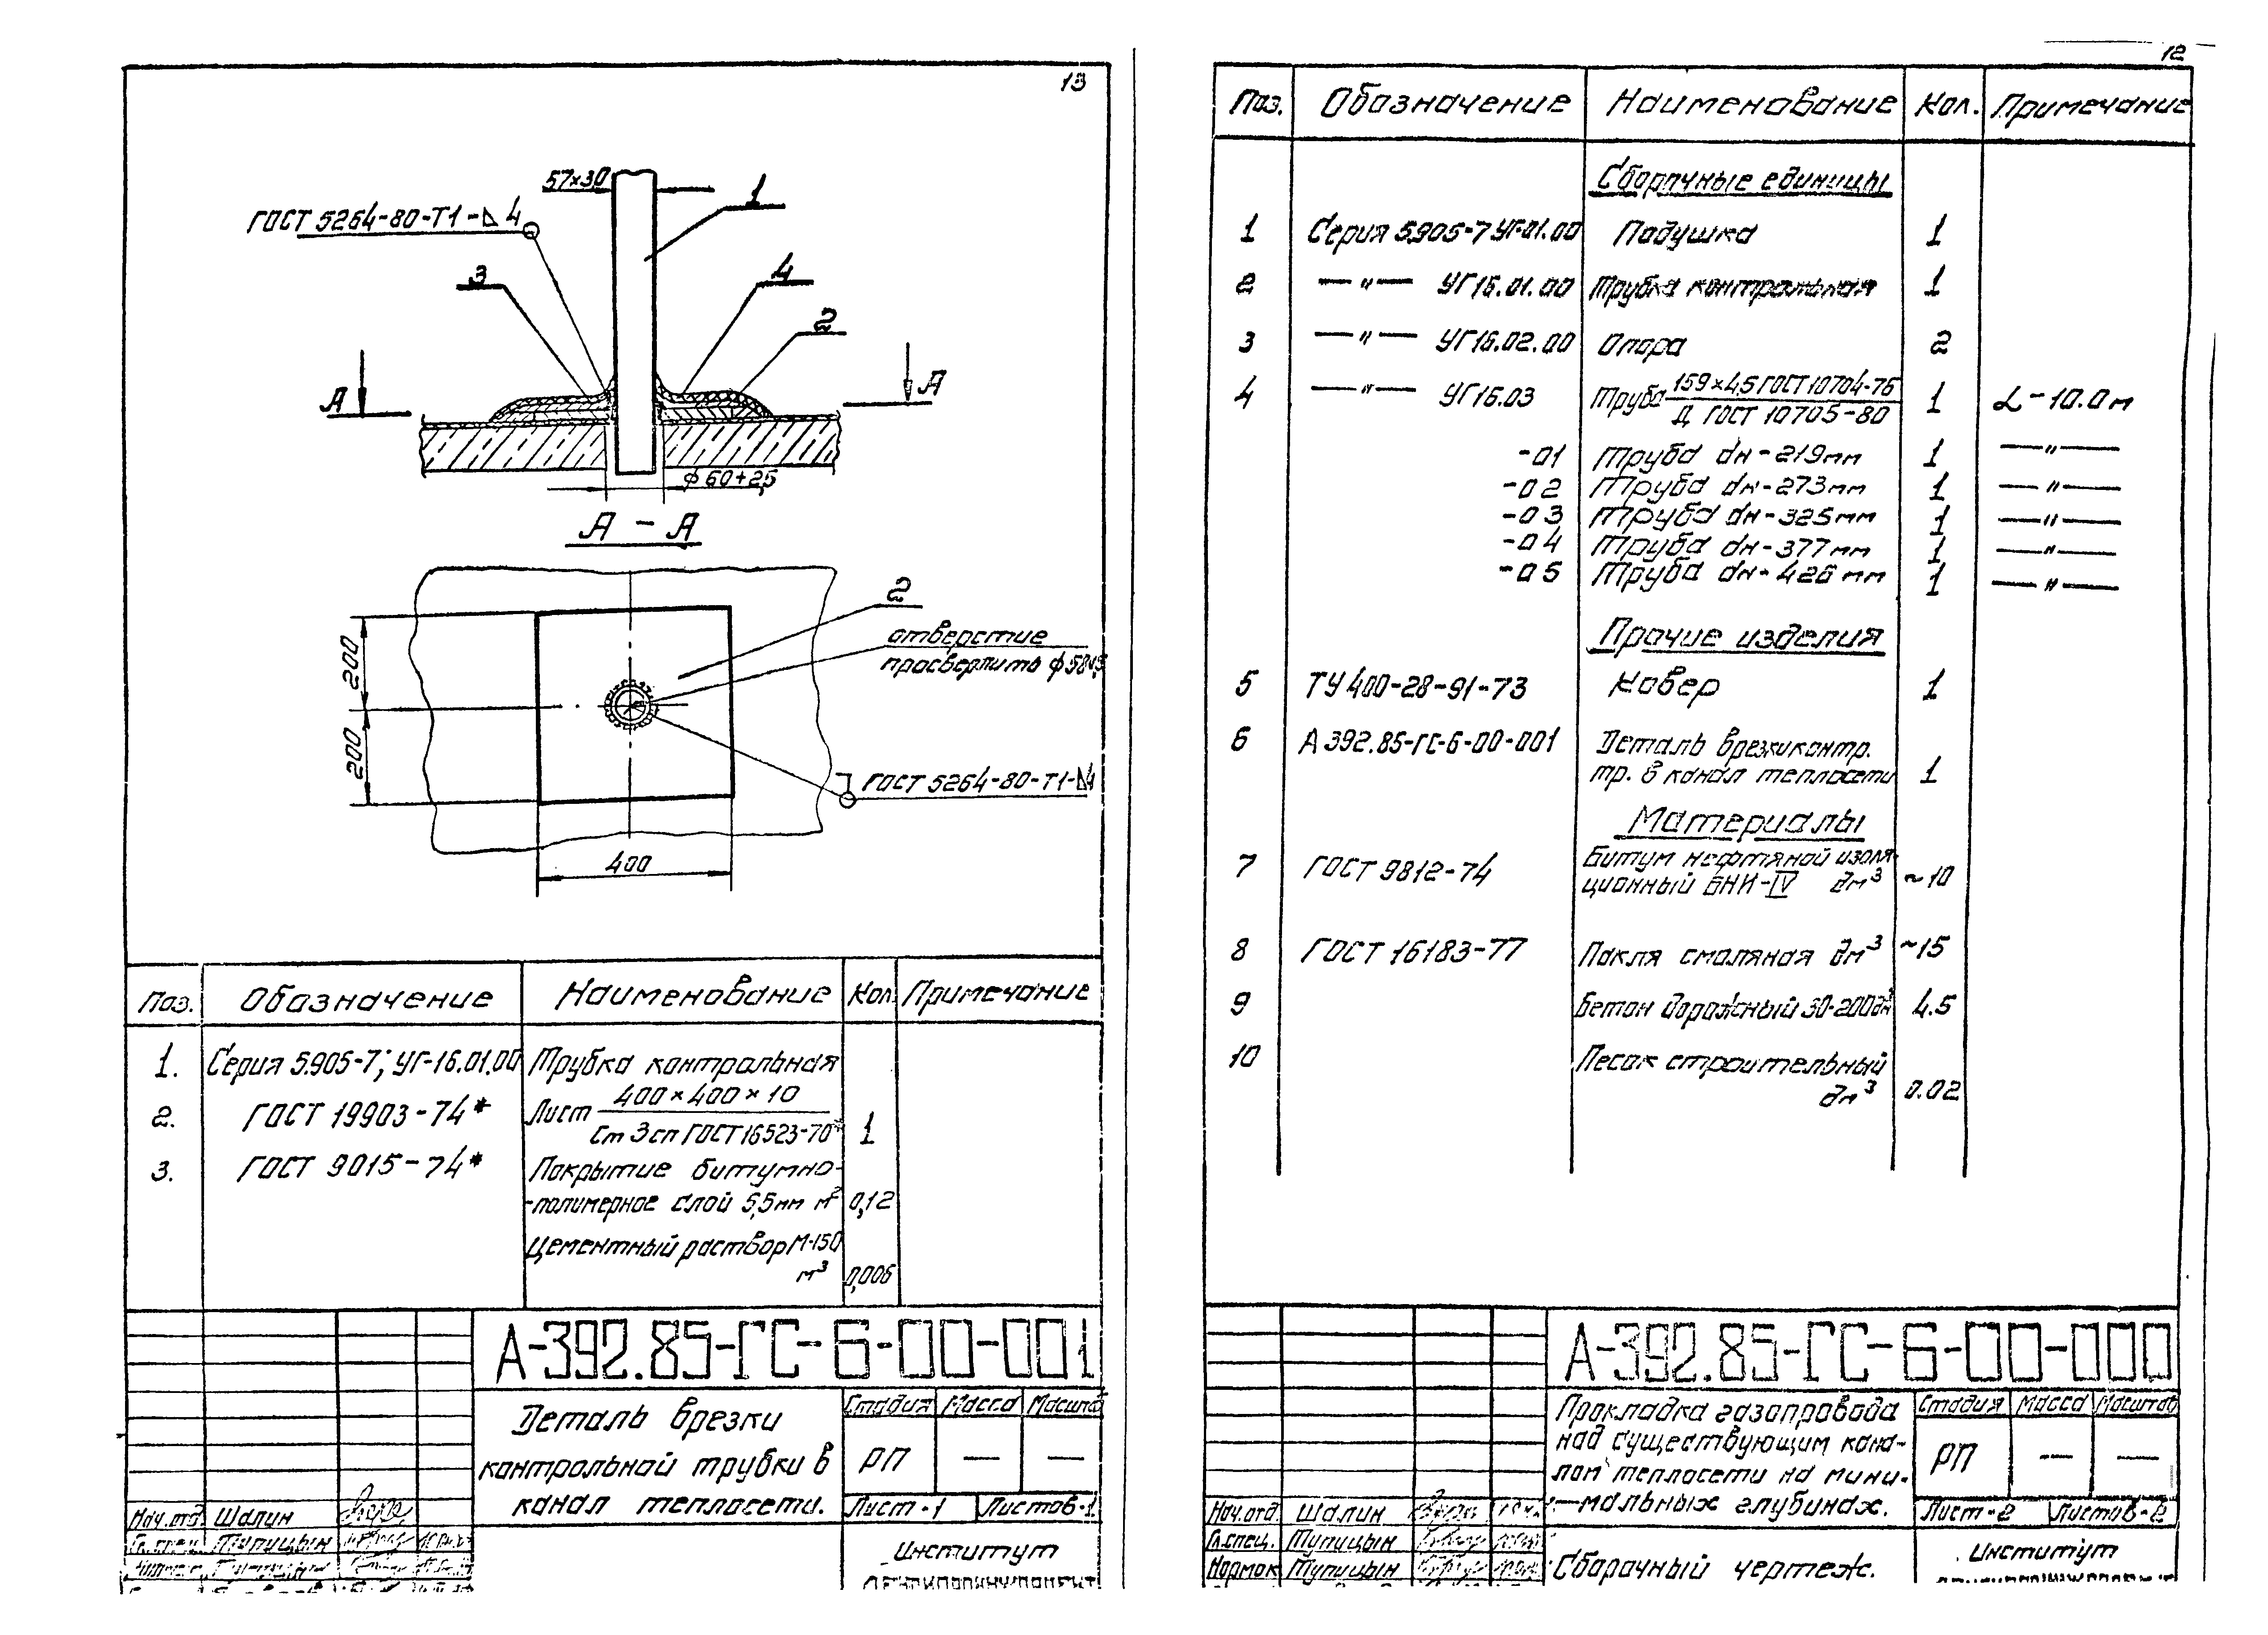 13
57×3,0
1
ГОСТ 5264-80-Т1-⊿4
3
4
2
А
А
ф 60+25
А - А
2
отверстие
просверлить ф58
200
200
ГОСТ 5264-80-Т1-⊿4
400
Поз. Обозначение Наименование Кол. Примечание
1. Серия 5.905-7; УГ-16.01.00 Трубка контрольная
2. ГОСТ 19903-74* Лист 400×400×10
Ст 3сп ГОСТ 16523-70* 1
3. ГОСТ 9015-74* Покрытие битумно-
-полимерное слой 5,5мм м² 0,12
Цементный раствор М-150
м³ 0,006
А-392.85-ГС-6-00-001
Деталь врезки
контрольной трубки в
канал теплосети.
Стадия Масса Масштаб
РП — —
Лист-1 Листов-1
Нач.отд. Шалин
Гл.спец. Тупицын
Институт
12
Поз. Обозначение Наименование Кол. Примечание
Сборочные единицы
1 Серия 5.905-7 УГ-01.00 Подушка 1
2 —〃— УГ16.01.00 Трубка контрольная 1
3 —〃— УГ16.02.00 Опора 2
4 —〃— УГ16.03 Труба 159×4,5 ГОСТ 10704-76
Д ГОСТ 10705-80 1 L-10.0м
-01 Труба dн-219мм 1 —〃—
-02 Труба dн-273мм 1 —〃—
-03 Труба dн-325мм 1 —〃—
-04 Труба dн-377мм 1 —〃—
-05 Труба dн-426мм 1 —〃—
Прочие изделия
5 ТУ 400-28-91-73 Ковер 1
6 А 392.85-ГС-6-00-001 Деталь врезки контр.
тр. в канал теплосети 1
Материалы
7 ГОСТ 9812-74 Битум нефтяной изоля-
ционный БНИ-IV дм³ ~10
8 ГОСТ 16183-77 Пакля смоляная дм³ ~15
9 Бетон дорожный 30-200 4.5
10 Песок строительный
дм³ 0.02
А-392.85-ГС-6-00-000
Прокладка газопровода
над существующим кана-
лом теплосети на мини-
-мальных глубинах.
Сборочный чертеж.
Стадия Масса Масштаб
РП — —
Лист-2 Листов-2
Нач.отд. Шалин
Гл.спец. Тупицын
Нормок. Тупицын
Институт